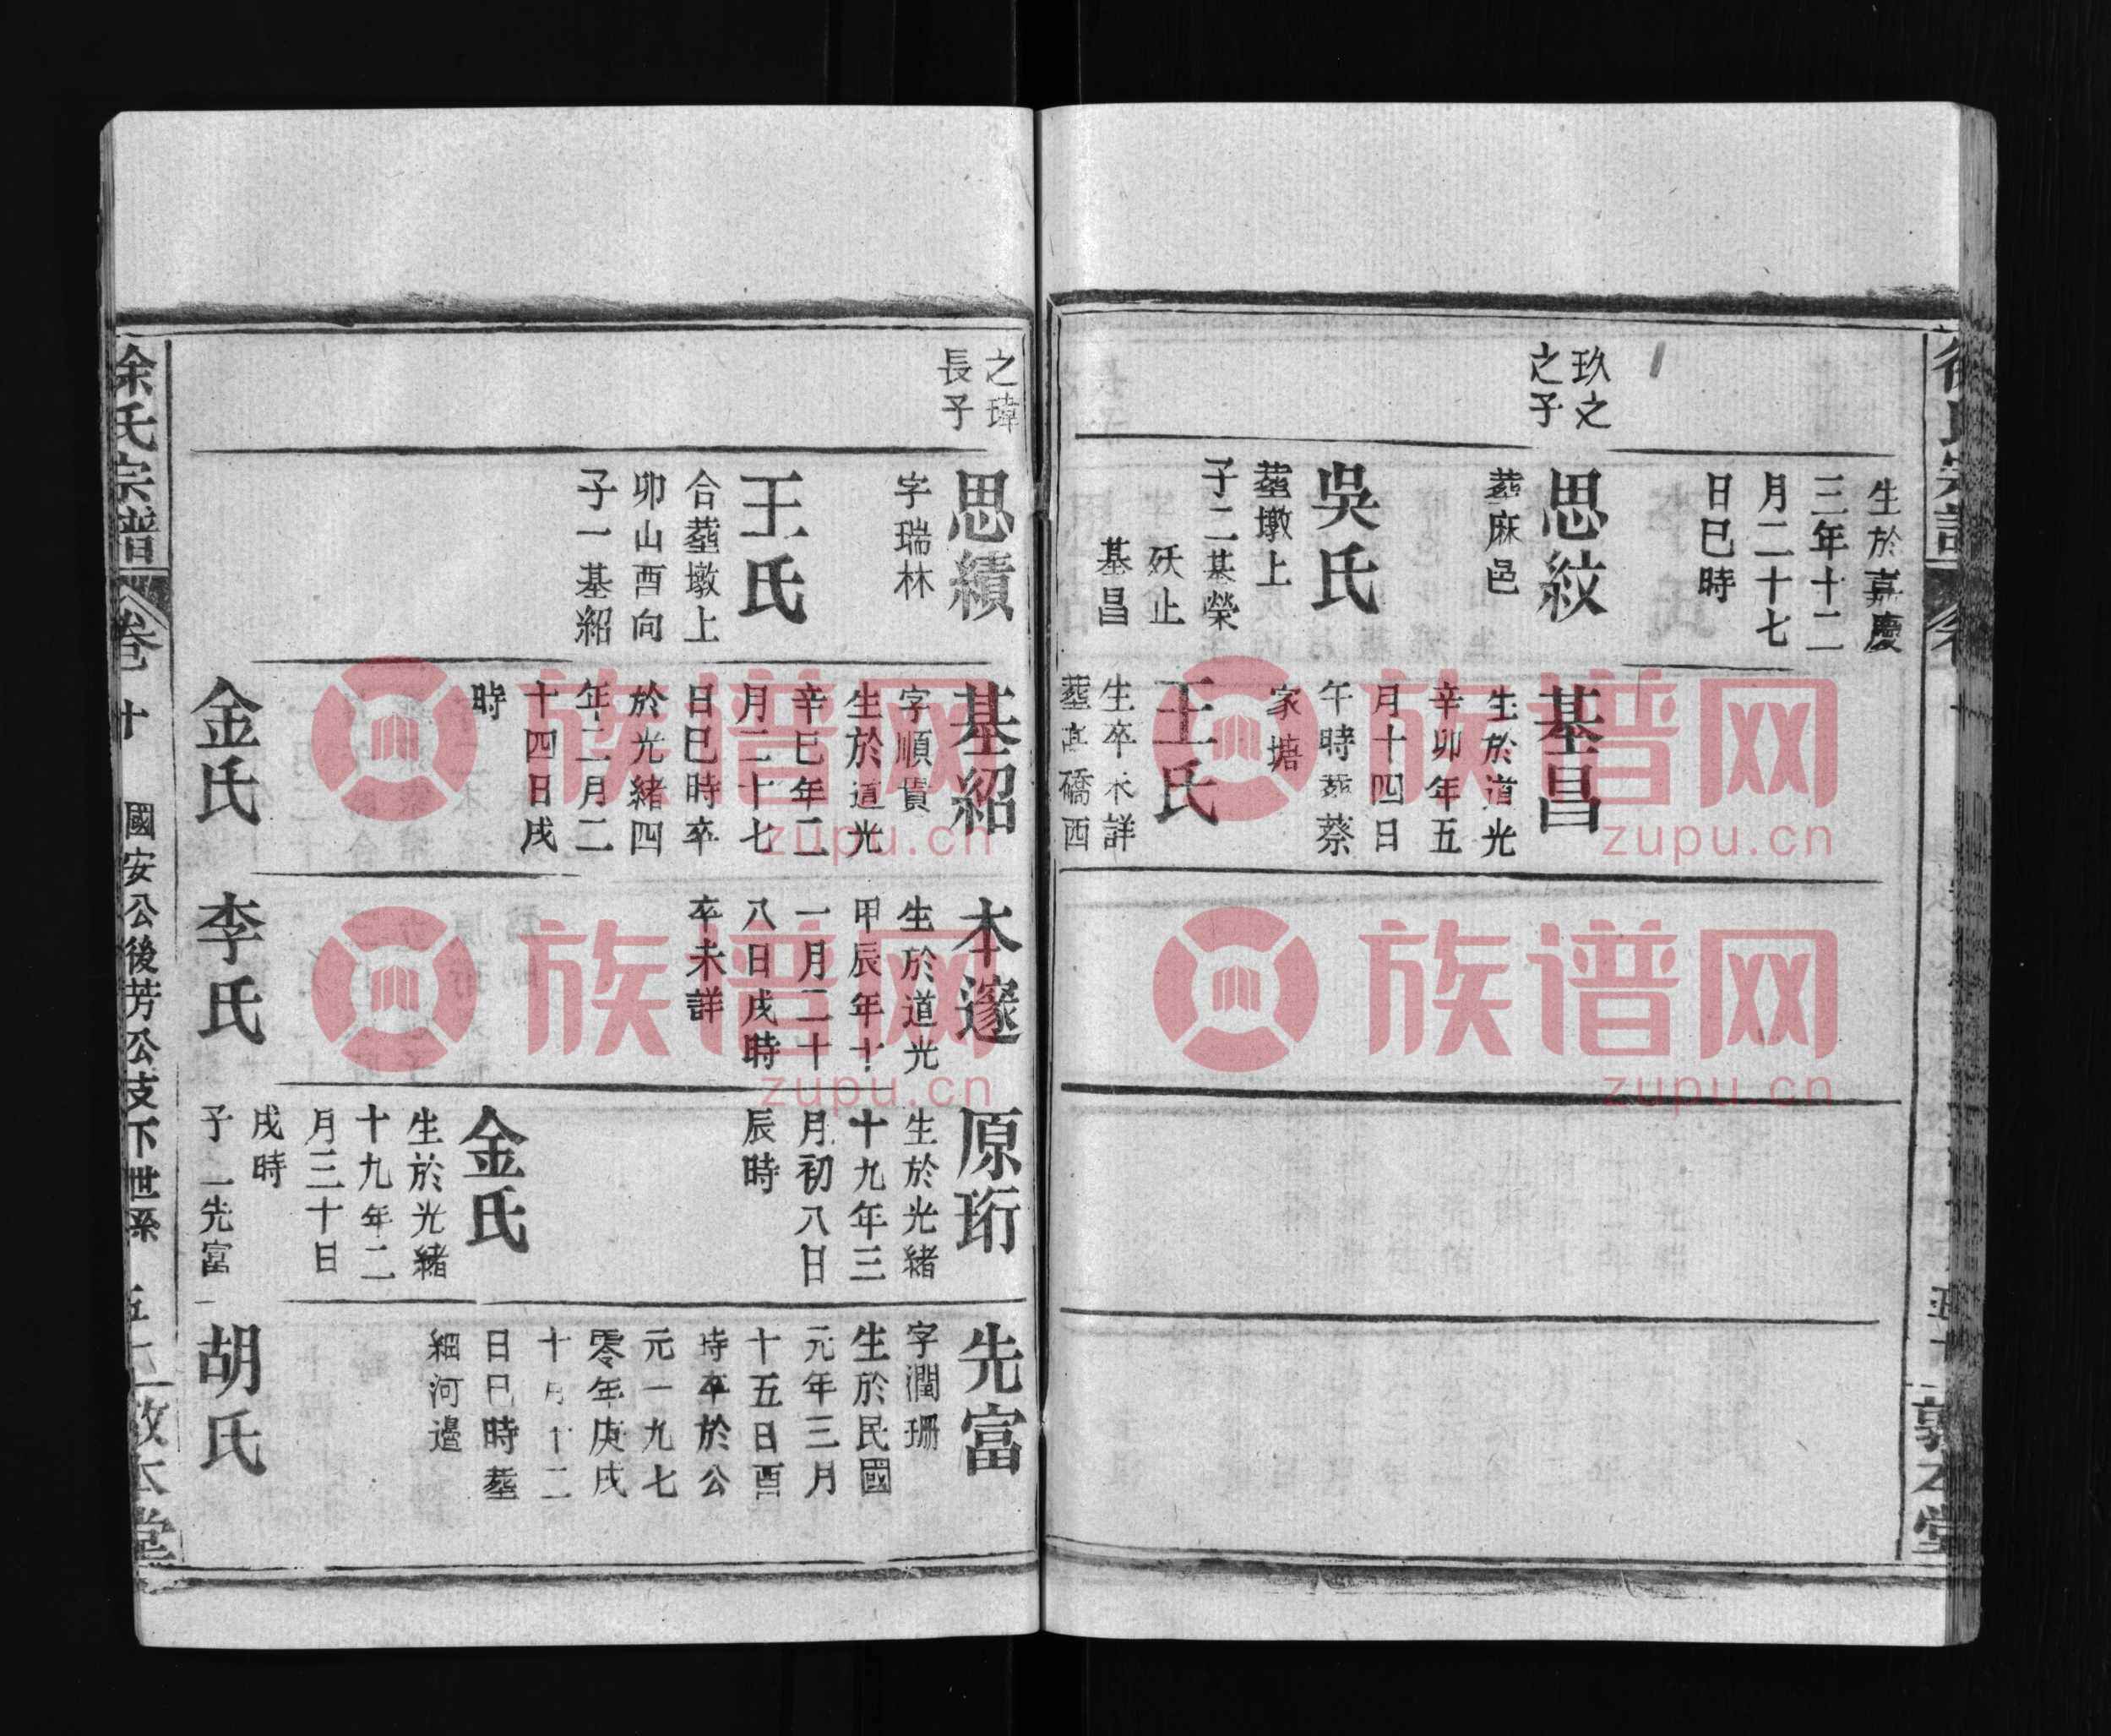 生於嘉慶
三年十二
月二十七
日巳時
玖之
之子
思紋
葬麻邑
吳氏
葬墩上
子二基榮
殀止
基昌
基昌
生於道光
辛卯年五
月十四日
午時葬蔡
家塘
王氏
生卒未詳
葬高礄西
敦本堂
之瑋
長子
思績
字瑞林
王氏
合葬墩上
卯山酉向
子一基紹
基紹
字順貴
生於道光
辛巳年二
月二十七
日巳時卒
於光緒四
年二月二
十四日戌
時
金氏
本邃
生於道光
甲辰年十
一月二十
八日戌時
卒未詳
李氏
原珩
生於光緒
十九年三
月初八日
辰時
金氏
生於光緒
十九年二
月三十日
戌時
子一先富
先富
字潤珊
生於民國
元年三月
十五日酉
時卒於公
元一九七
零年庚戌
十月十二
日巳時葬
細河邊
胡氏
徐氏宗譜
卷十
國安公後芳公支下世系
敦本堂
族谱网
zupu.cn
族谱网
zupu.cn
族谱网
zupu.cn
族谱网
zupu.cn